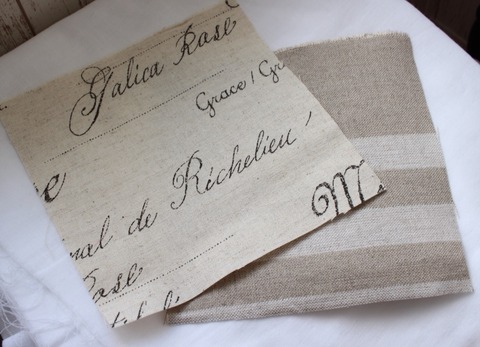 Galica Rose
Grace! Gr
nal de Richelieu'
M
Rose